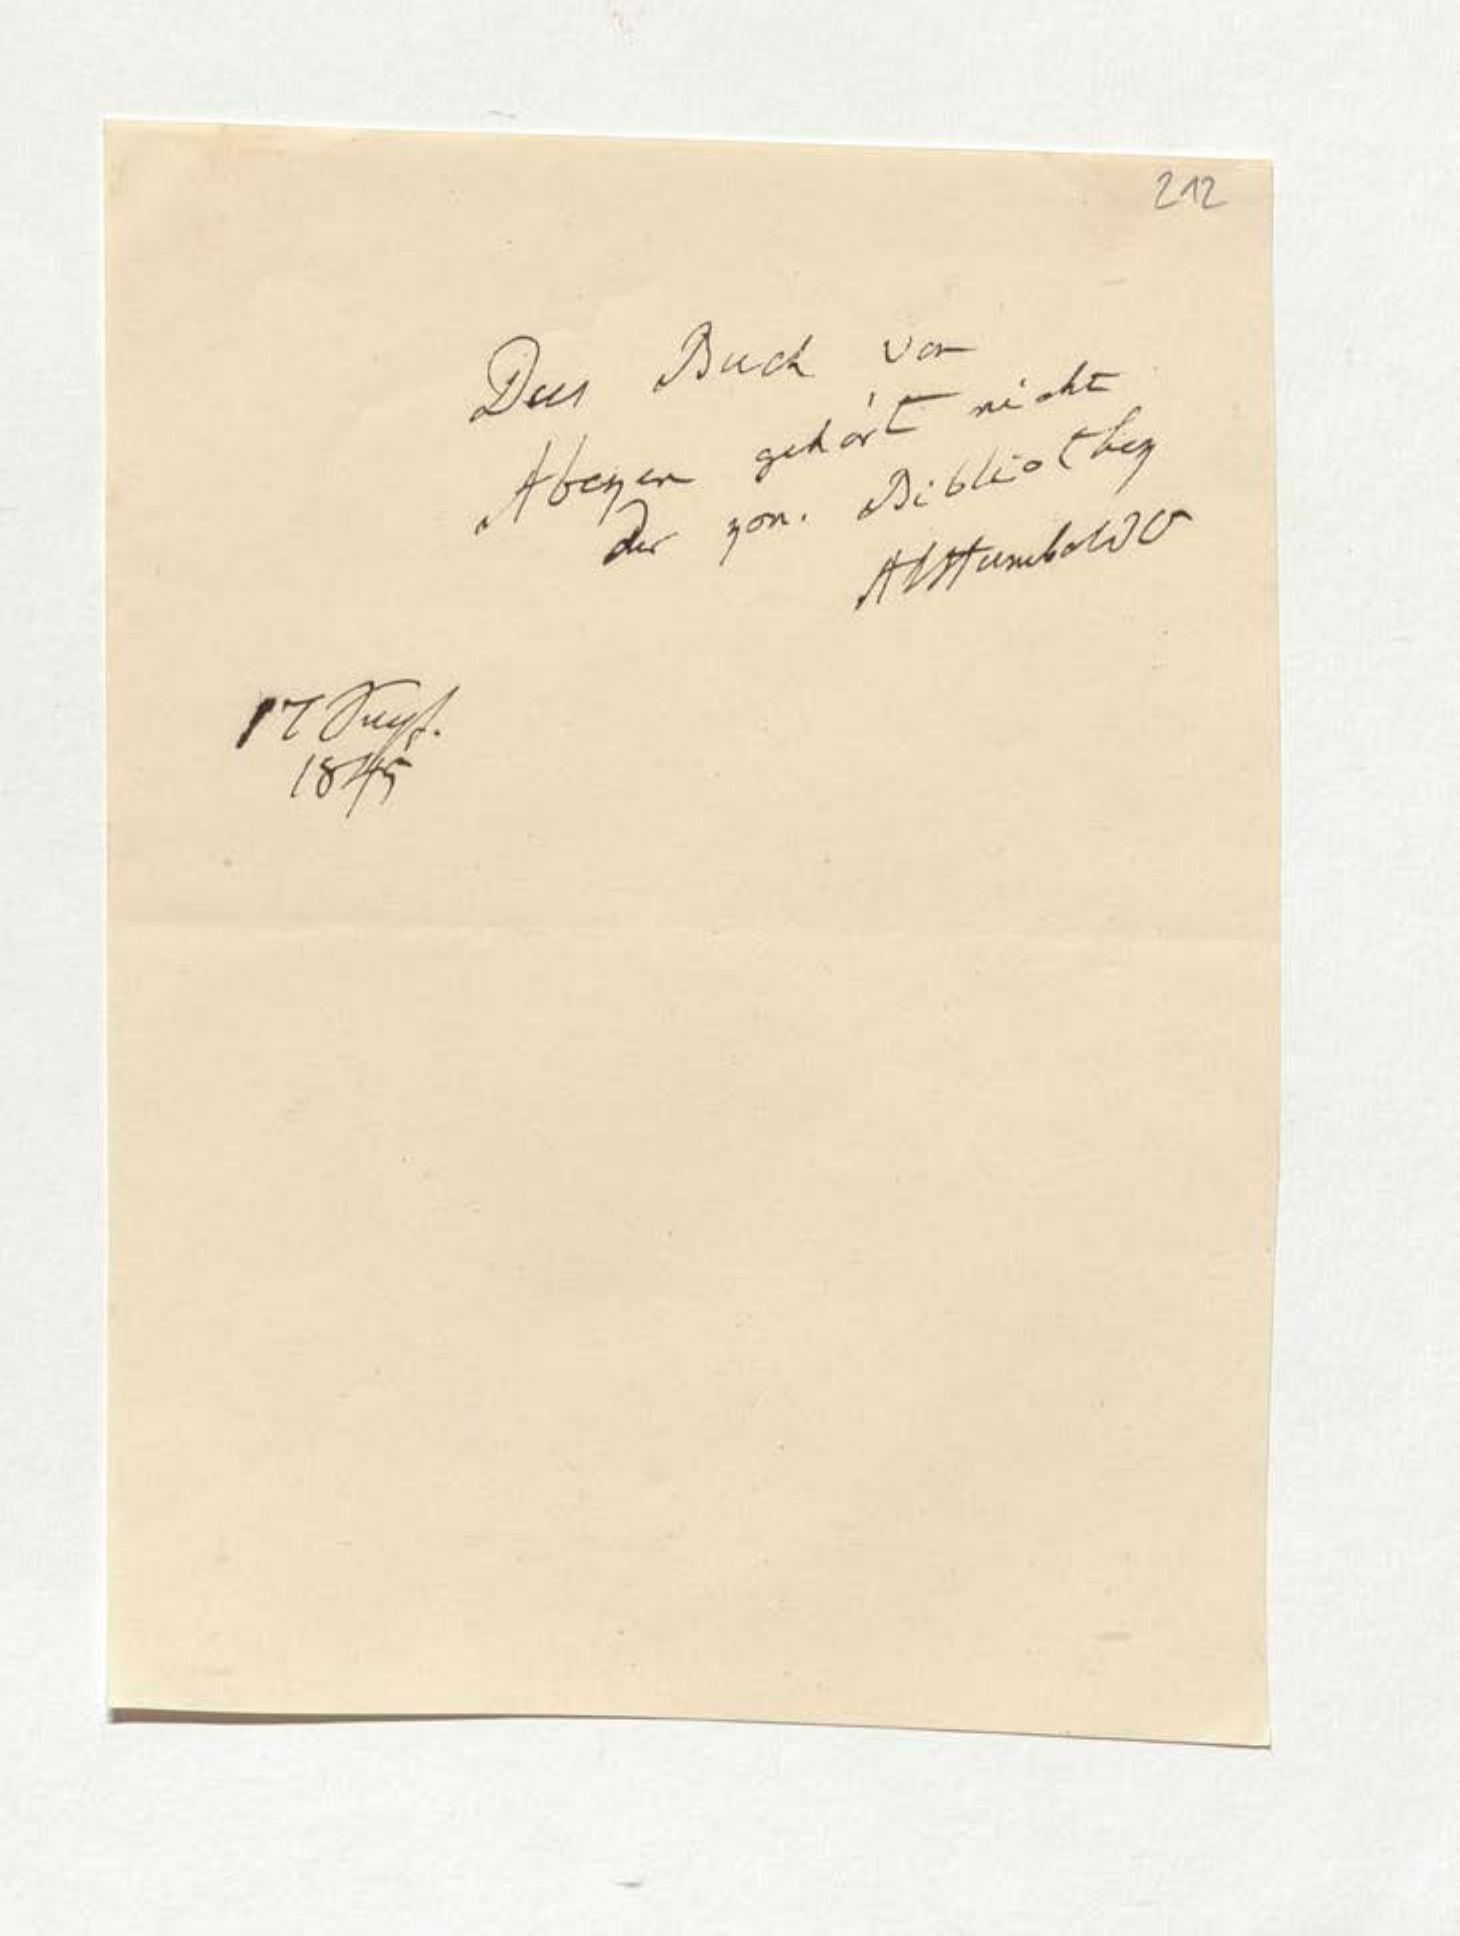 212
Das Buch von
Abeken gehört nicht
der kön. Bibliothek
AlHumboldt
17
1845